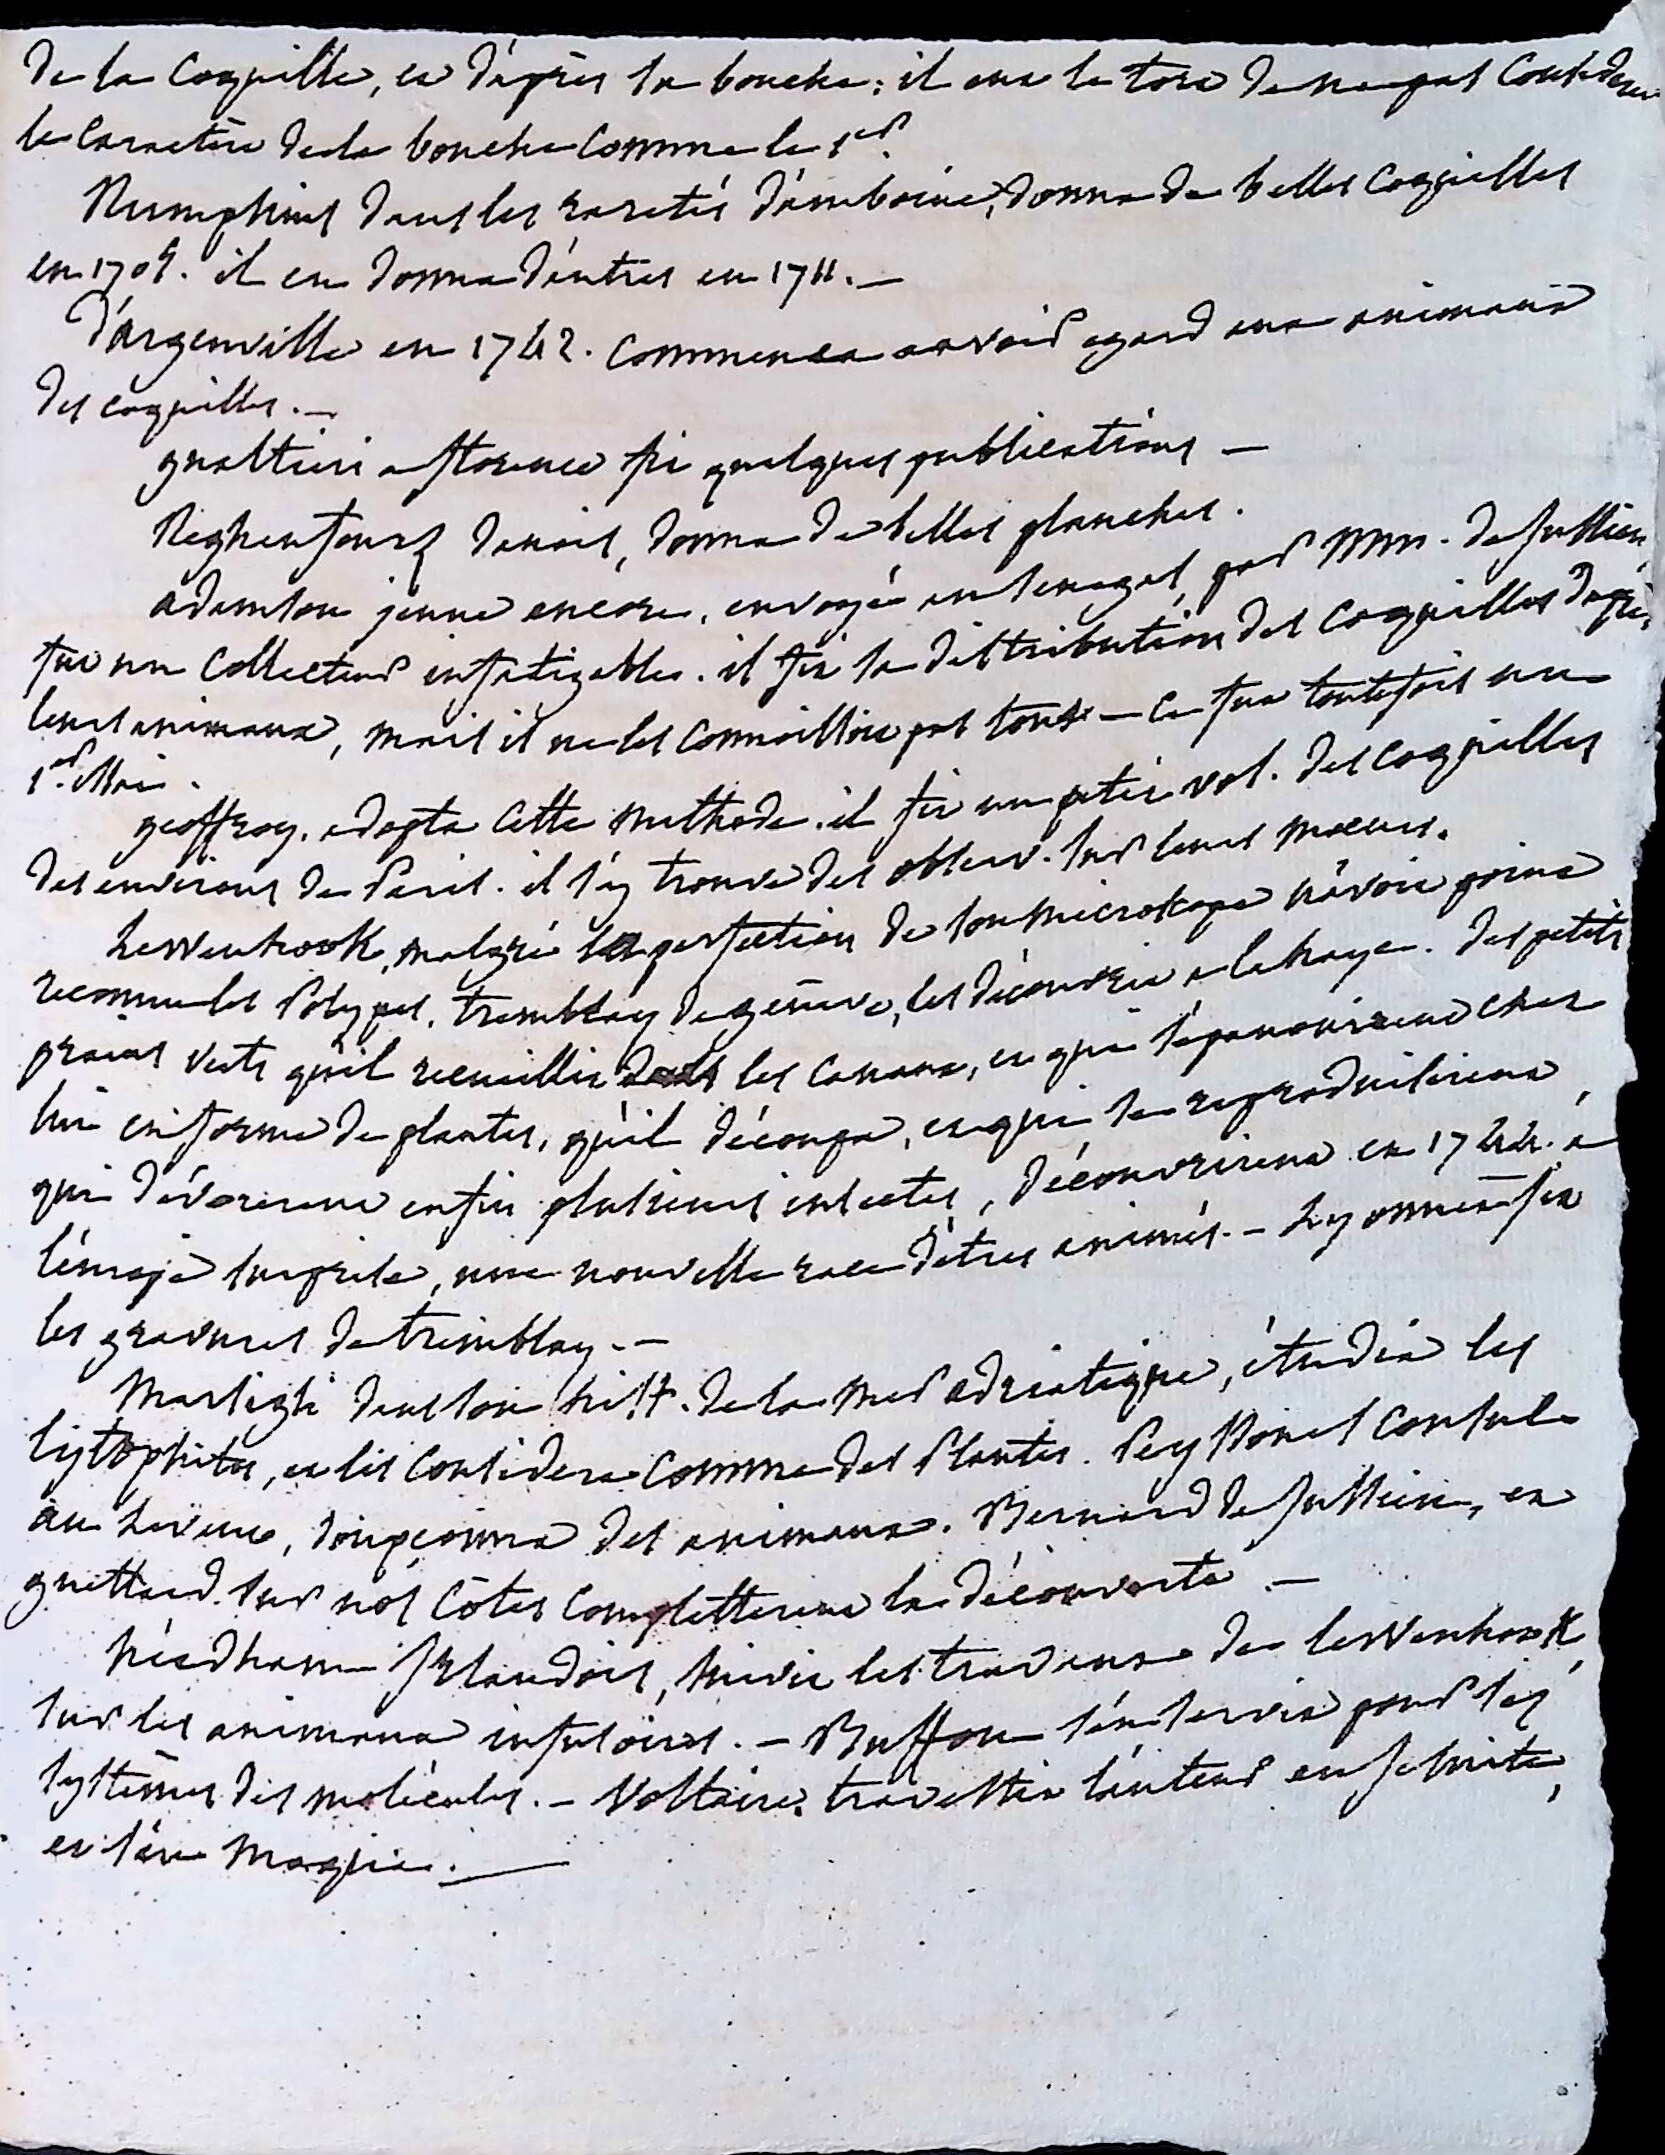 de la Coquille, et d'après la bouche; il eut le tort de ne pas Considerer
le Caractère de la bouche Comme le 1er.
Rumphius dans les raretés d'amboine, donna de belles Coquilles
en 1705. il en donna d'autres en 1711. —
d'Argenville en 1742. Commença a avoir egard aux animaux
des coquilles. —
gualtieri a florence fit quelques publications —
Reghenfousz danois, donna de belles planches.
adanson jeune encore, envoyé au senegal, par Mm. de jussieu,
fut un Collecteur infatigable. il fit la distribution des Coquilles d'après
leurs animaux, mais il ne les Connoissoit pas tous — Ce fut toutefois un
1er. essai.
geoffroy. adopta Cette méthode. il fit un petit vol. des Coquilles
des environs de Paris. il s'y trouve des observ. sur leurs moeurs.
Lewenhook, malgré la perfection de son microscope n'avoit point
reconnu les Polypes. tremblay de genève, les découvrit a la haye. des petits
grains verts qu'il recueillit dans les Canaux, et qui s'epanouirent chez
lui en forme de plantes, qu'il découpa, et qui se reproduisirent,
qui dévorerent enfin plusieurs insectes, découvrirent en 1744. a
l'europe surprise, une nouvelle race d'êtres animés. — Lyonnet fit
les gravures de tremblay. —
Marsigli dans son hist. de la mer adriatique, étudia les
lytophites, et les Considera Comme des Plantes. Peyssonel Consul
au Levant, soupçonna des animaux. Bernard de Jussieu, et
guettard sur nos Côtes Completterent la découverte —
Néedham Irlandois, suivit les travaux de lewenhook
sur les animaux infusoires. — Buffon s'en servit pour ses
systêmes des molécules. — Voltaire, travestit l'auteur en jesuite,
et s'en moqua. —